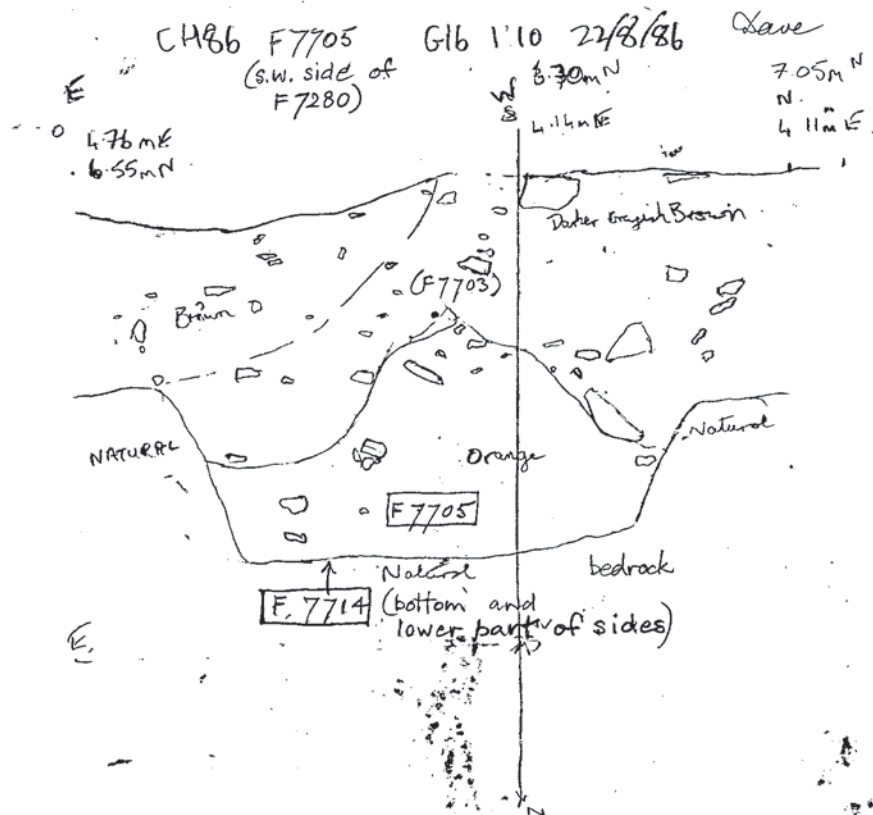 CH86 F7705 G16 1:10 22/8/86 Dave
(s.w. side of
F7280)
E
4.76mE
6.55mN
W
S
6.30mN
4.14mE
7.05mN
N.
4.11mE.
Darker Greyish Brown
(F7703)
Brown
NATURAL
Natural
Orange
F7705
Natural
bedrock
F. 7714
(bottom and
lower part of sides)
E.
N